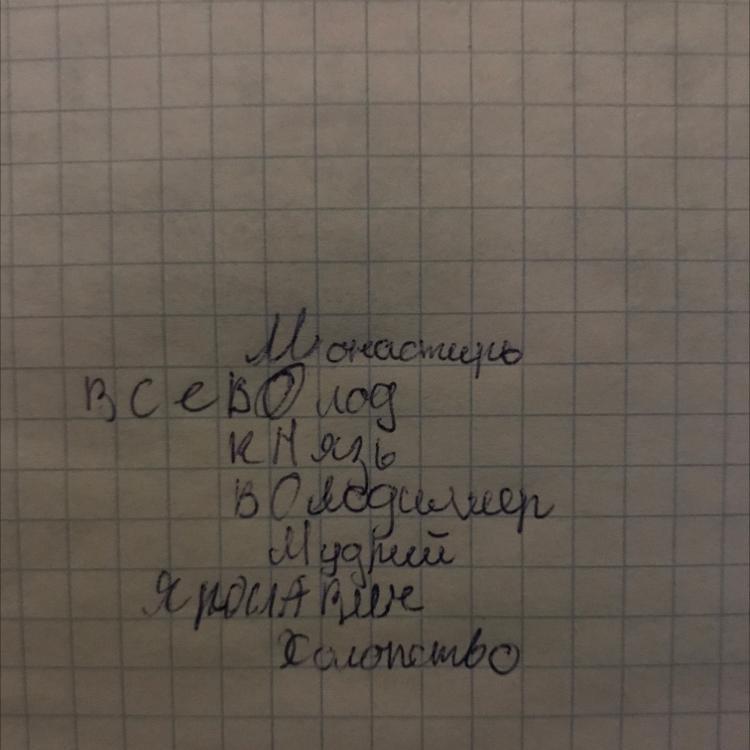 Монастирь
ВСеВОлод
КНязь
ВОлодимиер
Мудрий
ЯрослАВичі
Холопство